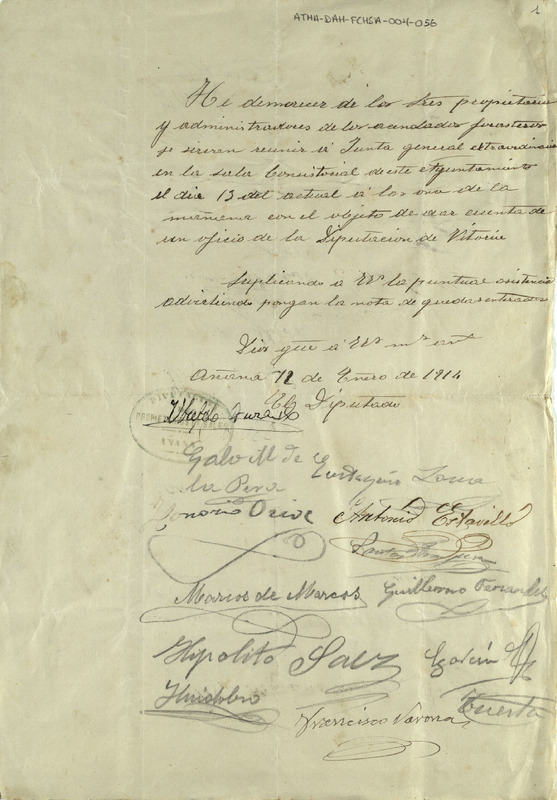 1
ATHH-DAH-FCHSA-004-056
He de merecer de los Sres propietarios
y administradores de los acendados forasteros
se sirvan reunir á Junta general extraordinaria
en la sala Consistorial de este Ayuntamiento
el dia 13 del actual á las once de la
mañana con el objeto de dar cuenta de
un oficio de la Diputacion de Vitoria
Suplicando á VVs la puntual asistencia
advirtiendo pongan la nota de quedar enterados
Dios gue á VVs ms as
Añana 12 de Enero de 1914
El Diputado
Ubaldo
Galo M. de Eustaquio
la Pera
Honorio Orive Antonio Estavillo
Marcos de Marcos Guillermo Fernandez
Hipolito Saez
Huidobro Tuesta
Francisco Varona